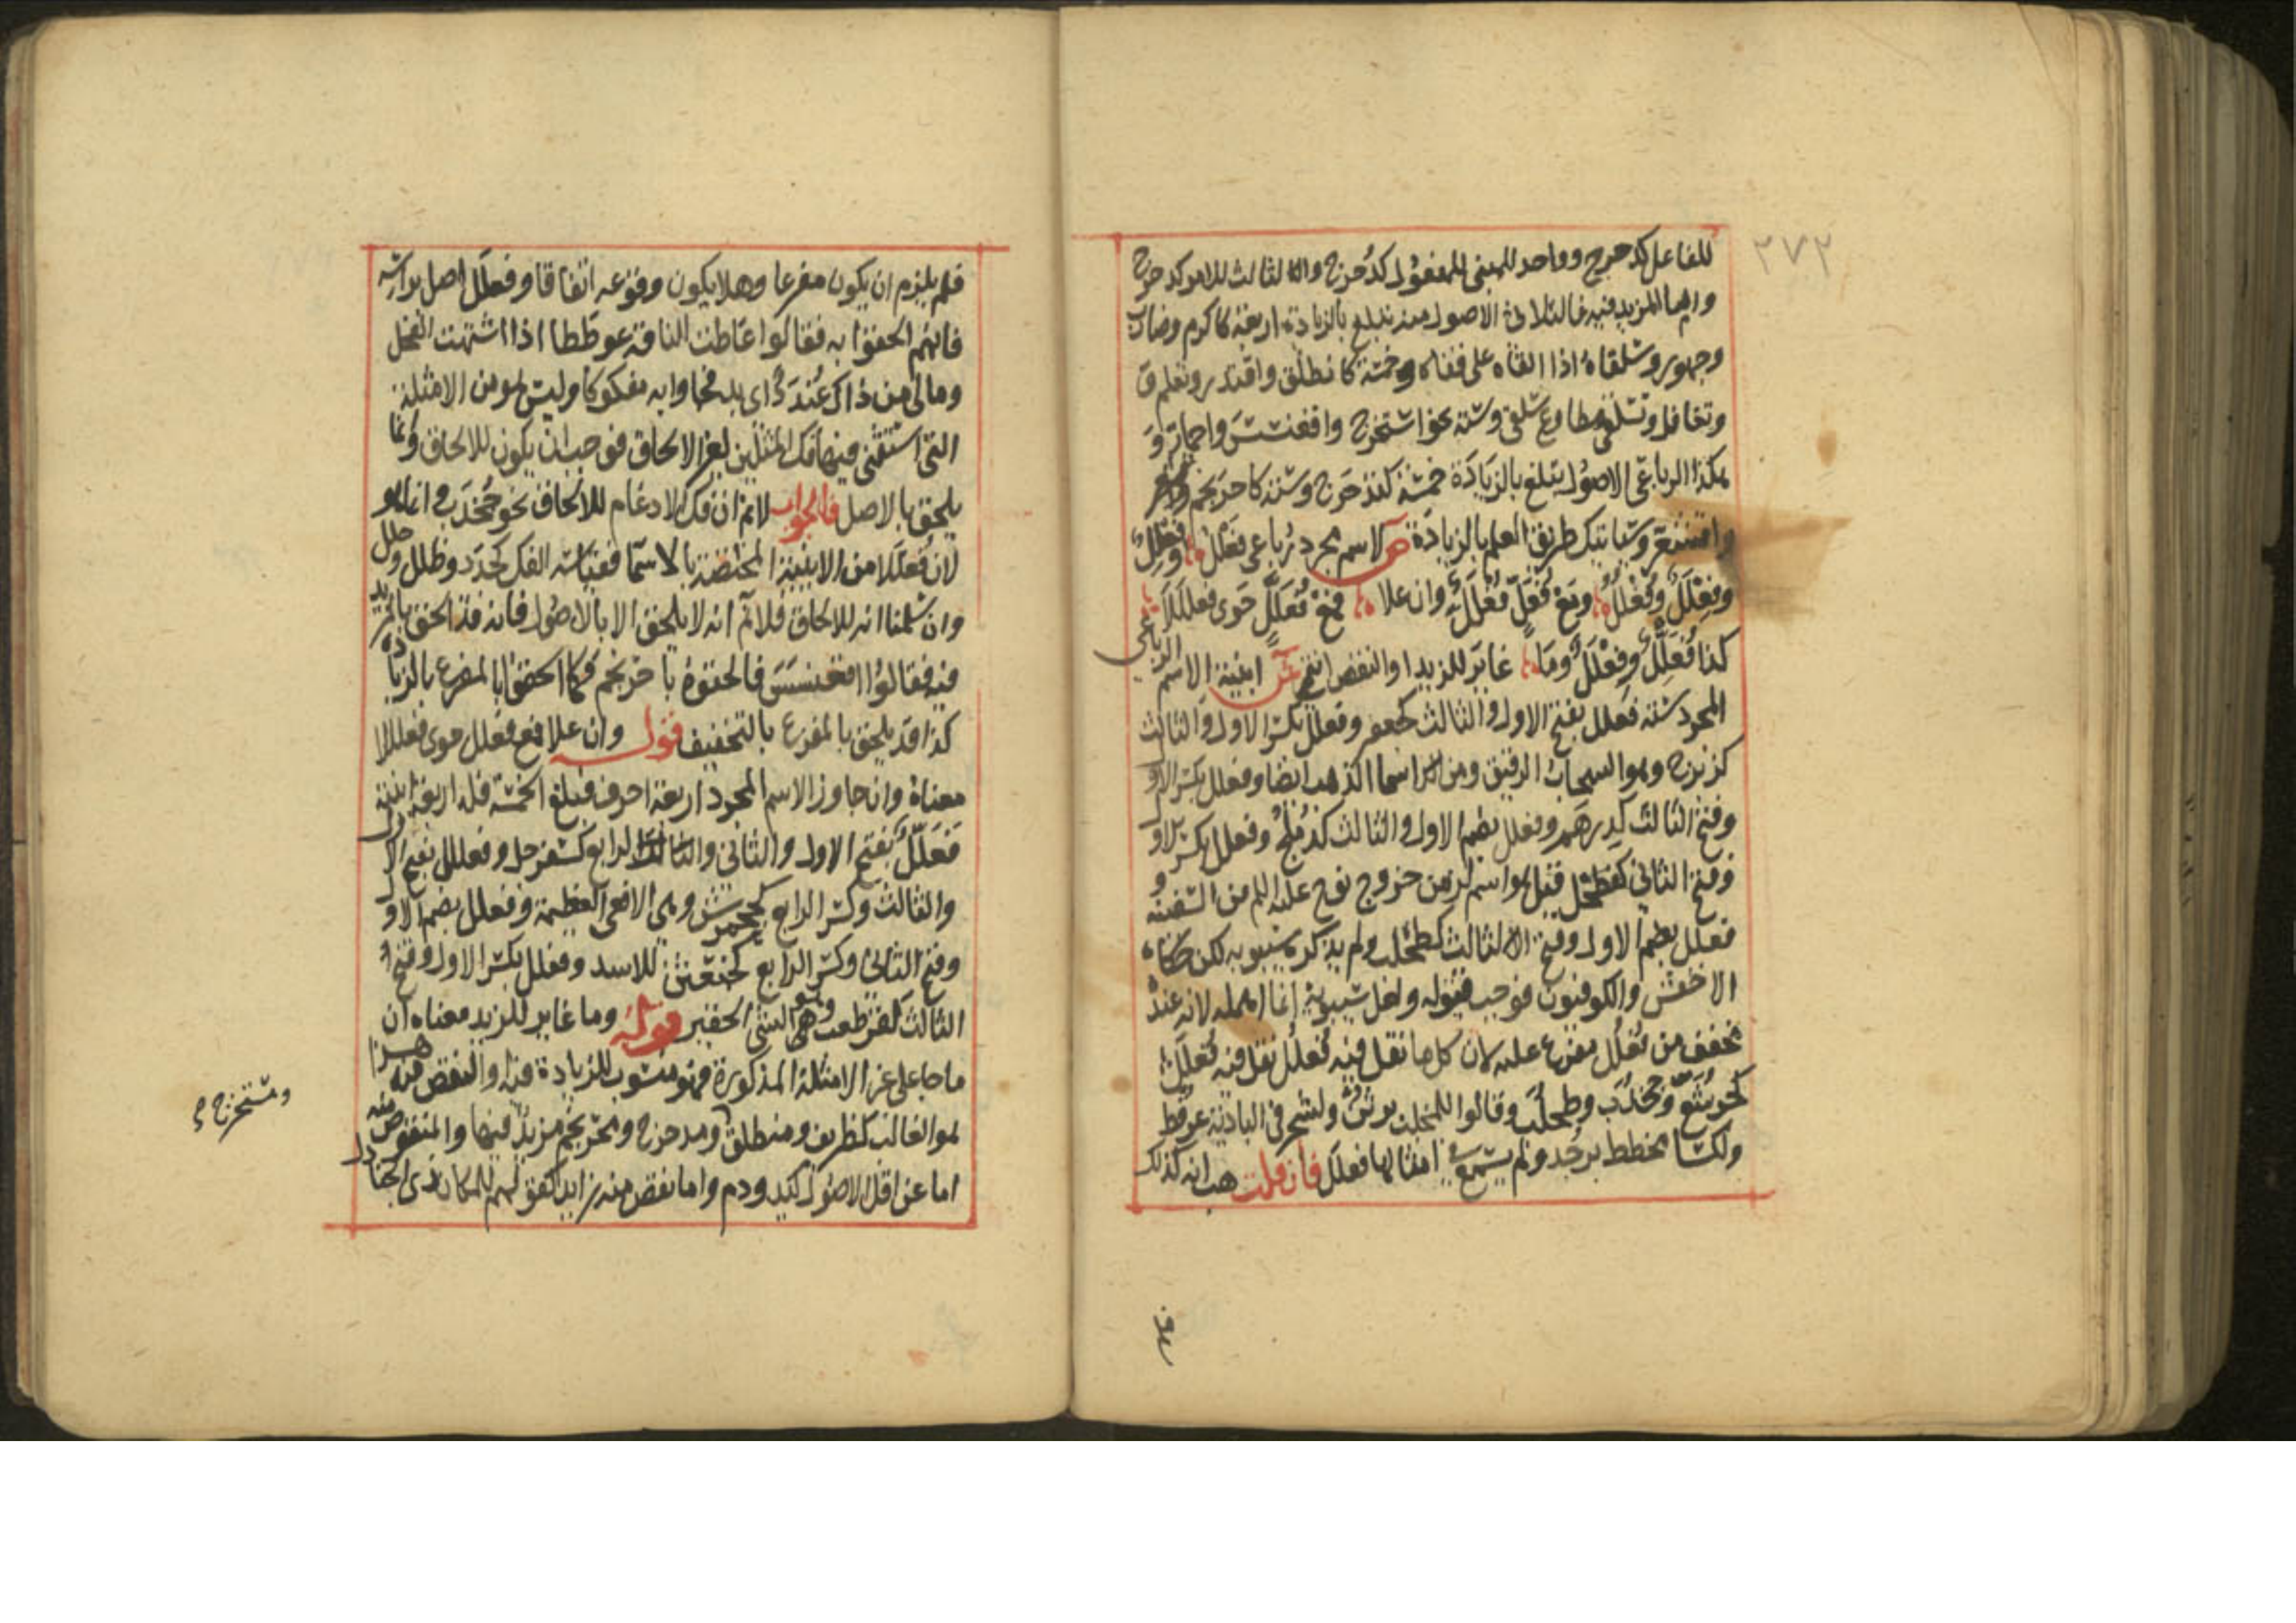 ٢٧٢
للفاعل كدحرج وواحد للمبنى للمفعول كدُحرج والثالث للامر كدحرج
واما المزيد فيه فالثلاثى الاصول منه تبلغ بالزيادة اربعة كاكرم وضارب
وجهور وسلقاه اذا القاه على قفاه وخمسة كانطلق واقتدر وتعلم و
وتغافل وتسلقى مطاوع سلقى وستة نحو استخرج واقعنسس واحمارّ و
هكذا الرباعى الاصول يتلغ بالزيادة خمسة كتدحرج وستة كاحرنجم
واقشعرّ وسياتيك طريق العلم بالزيادة ص لاسم مجرد رباعى فعلل وفِعلِل
وفِعلَل وفُعلُل ومع فِعَلّ فُعلَل وان علا فمع فَعَلَّل حوى فعلَلِلا
كذا فُعَلِّل وفِعْلَلّ وما غاير للزيد او النقص انتمى ش ابنية الاسم الرباعى
المجرد ستة فعلل بفتح الاول والثالث كجعفر وفعلل بكسر الاول والثالث
كزبرج وهو السحاب الرقيق ومن اسما الذهب ايضا وفعلل بكسر الاول
وفتح الثالث كدِرهَم وفعلل بضم الاول والثالث كدُملُج وفعلل بكسر الاول
وفتح الثانى كفطحل قيل هو اسم لزمن خروج نوح عليه السلم من السفينة و
فعلل بضم الاول وفتح الثالث كطحلب ولم يذكره سيبويه لكن حكاه
الاخفش والكوفيون فوجب قبوله ولعل سيبويه انما اهمله لانه عنده
مخفف من فُعلُل مفرع عليه لان كل ما نقل فيه فُعلَل نقل فيه فُعلُل
كجرشع وجخدب وطحلب وقالوا للمخلب برثن ولشجر فى البادية عرفط
ولكسا مخطط برجد ولم يسمع فى امثالها فعلَل فان قلت هب انه كذلك
فلم يلزم ان يكون مفرعا وهلا يكون وقوعه اتفاقا وفعلَل اصل براسه
فانهم الحقوا به فقالوا عاطت الناقة عوططا اذا اشتهت الفحل
ومالى من ذاك عُندَد اى بد فجاوا به مفكوكا وليس هو من الامثلة
التى استثنى فيها فك المثلين لغير الالحاق فوجب ان يكون للالحاق وانما
يلحق بالاصل فالجواب لانم ان فك الادغام للالحاق نحو جُخدَب وانما هو
لان فُعلَلا من الابنية المختصة بالاسما فقياسه الفك كجدد وظلل وحلل
وان سلمنا انه للالحاق فلا نم انه لا يلحق الا بالاصول فانه قد الحق بالمزيد
فيه فقالوا اقعنسس فالحقوه باحرنجم فكما الحقوا بالمفرع بالزيادة
كذا قد يلحق بالمفرع بالتخفيف قوله وان علا فمع فعلل حوى فعلللا
معناه وان جاوز الاسم المجرد اربعة احرف فبلغ الخمسة فله اربعة ابنية
فَعَلَّل بفتح الاول والثانى والرابع كسفرجل وفعللل بفتح الاول
والثالث وكسر الرابع كجحمرش وهى الافعى العظيمة وفعلل بضم الاول
وفتح الثانى وكسر الرابع كخبعثن للاسد وفعلل بكسر الاول وفتح
الثالث كقرطعب وهو الشئ الحقير قوله وما غاير للزيد معناه ان
ما جا على غير الامثلة المذكورة فهو منسوب للزيادة فيه والنقص منه هذا
هو الغالب كظريف ومنطلق ومدحرج ومحرنجم مزيد فيها والمنقوص منه
اما عن اقل الاصول كيد ودم واما نقص منه زايد كقولهم للمكان ذى الجنادل
ومستخرج